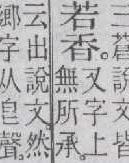 三蒼說文皆
若香。又字上
無所承。
云出說文然
鄉字从皀聲。